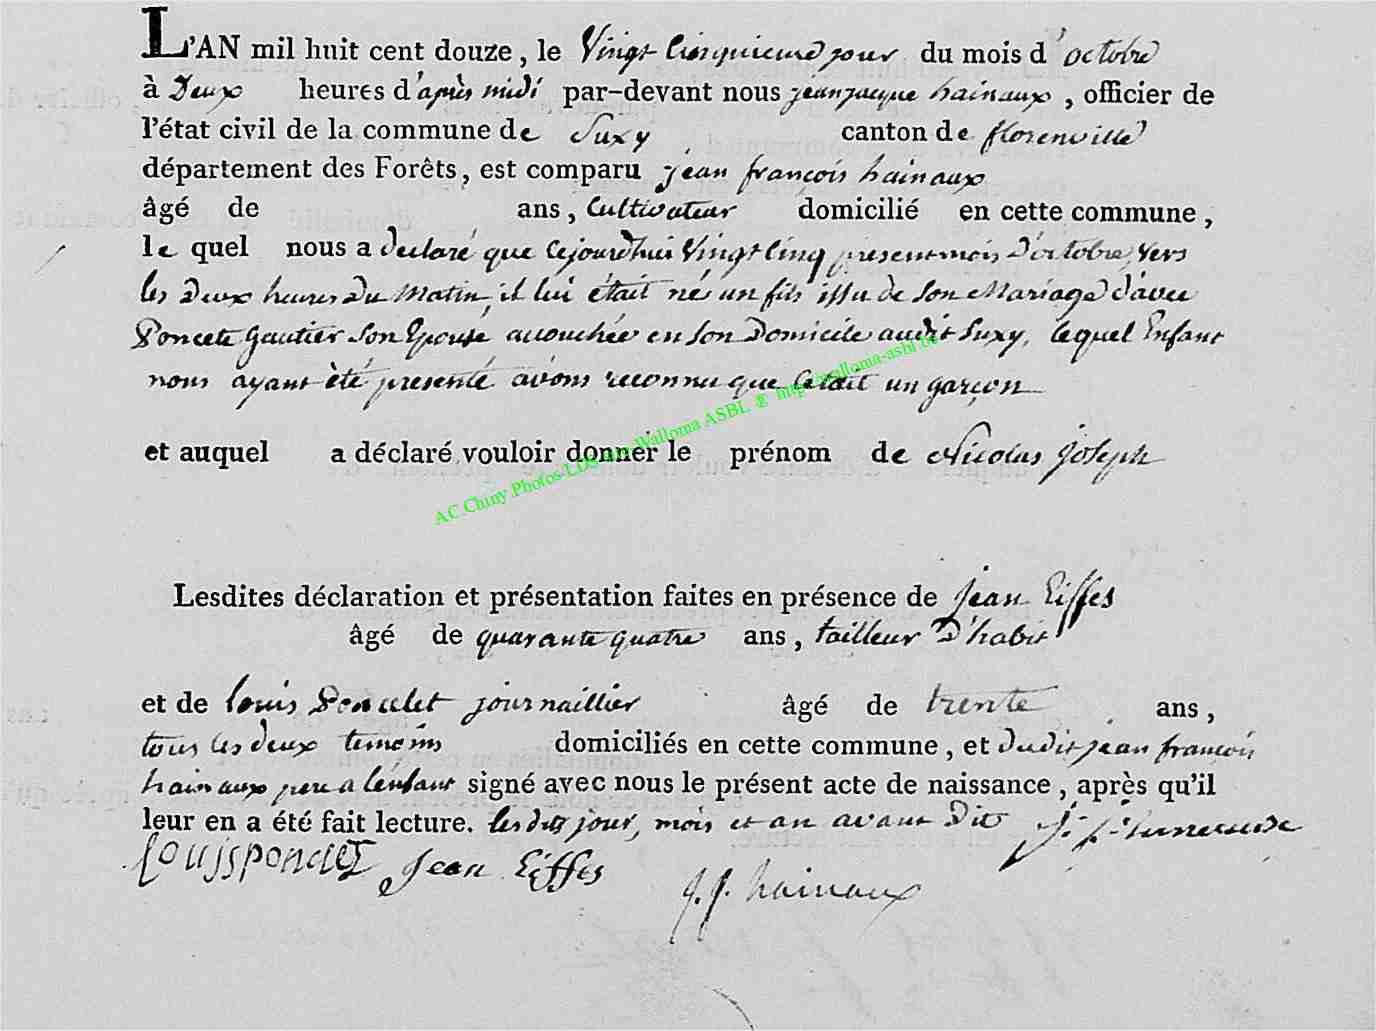 L'AN mil huit cent douze, le Vingt Cinquieme jour du mois d'octobre
à Deux heures d'après midi par-devant nous jean jacque hainaux, officier de
l'état civil de la commune de Suxy canton de florenville
département des Forêts, est comparu jean françois hainaux
âgé de ans, Cultivateur domicilié en cette commune,
le quel nous a declaré que cejourdhui Vingt Cinq present mois d'octobre, vers
les deux heures du Matin il lui était né un fils issu de son Mariage d'avec
Poncete gautier son Epouse accouchée en son Domicile audit Suxy, lequel Enfant
nous ayant été presenté avons reconnu que c'etait un garçon
et auquel a déclaré vouloir donner le prénom de Nicolas joseph
AC Chiny Photos LDS Walloma ASBL ® http://walloma-asbl.be
Lesdites déclaration et présentation faites en présence de jean Eiffes
âgé de quarante quatre ans, tailleur D'habit
et de louis Poncelet journaillier âgé de trente ans,
tous les deux temoins domiciliés en cette commune, et dudit jean françois
hainaux pere a l'enfant signé avec nous le présent acte de naissance, après qu'il
leur en a été fait lecture. les dits jour, mois et an avant Dit
Jean Eiffes
j. j. hainaux